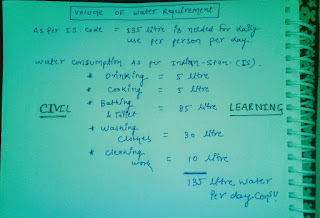 Volume of water Requirement
As per IS. code = 135 litre is needed for daily
use per person per day.
Water Consumption As per Indian-Stan-(IS).
* Drinking = 5 litre
* Cooking = 5 litre
* Bathing & toilet = 85 litre
CIVIL LEARNING
* Washing clothes = 30 litre
* Cleaning work = 10 litre
135 litre water
Per day.